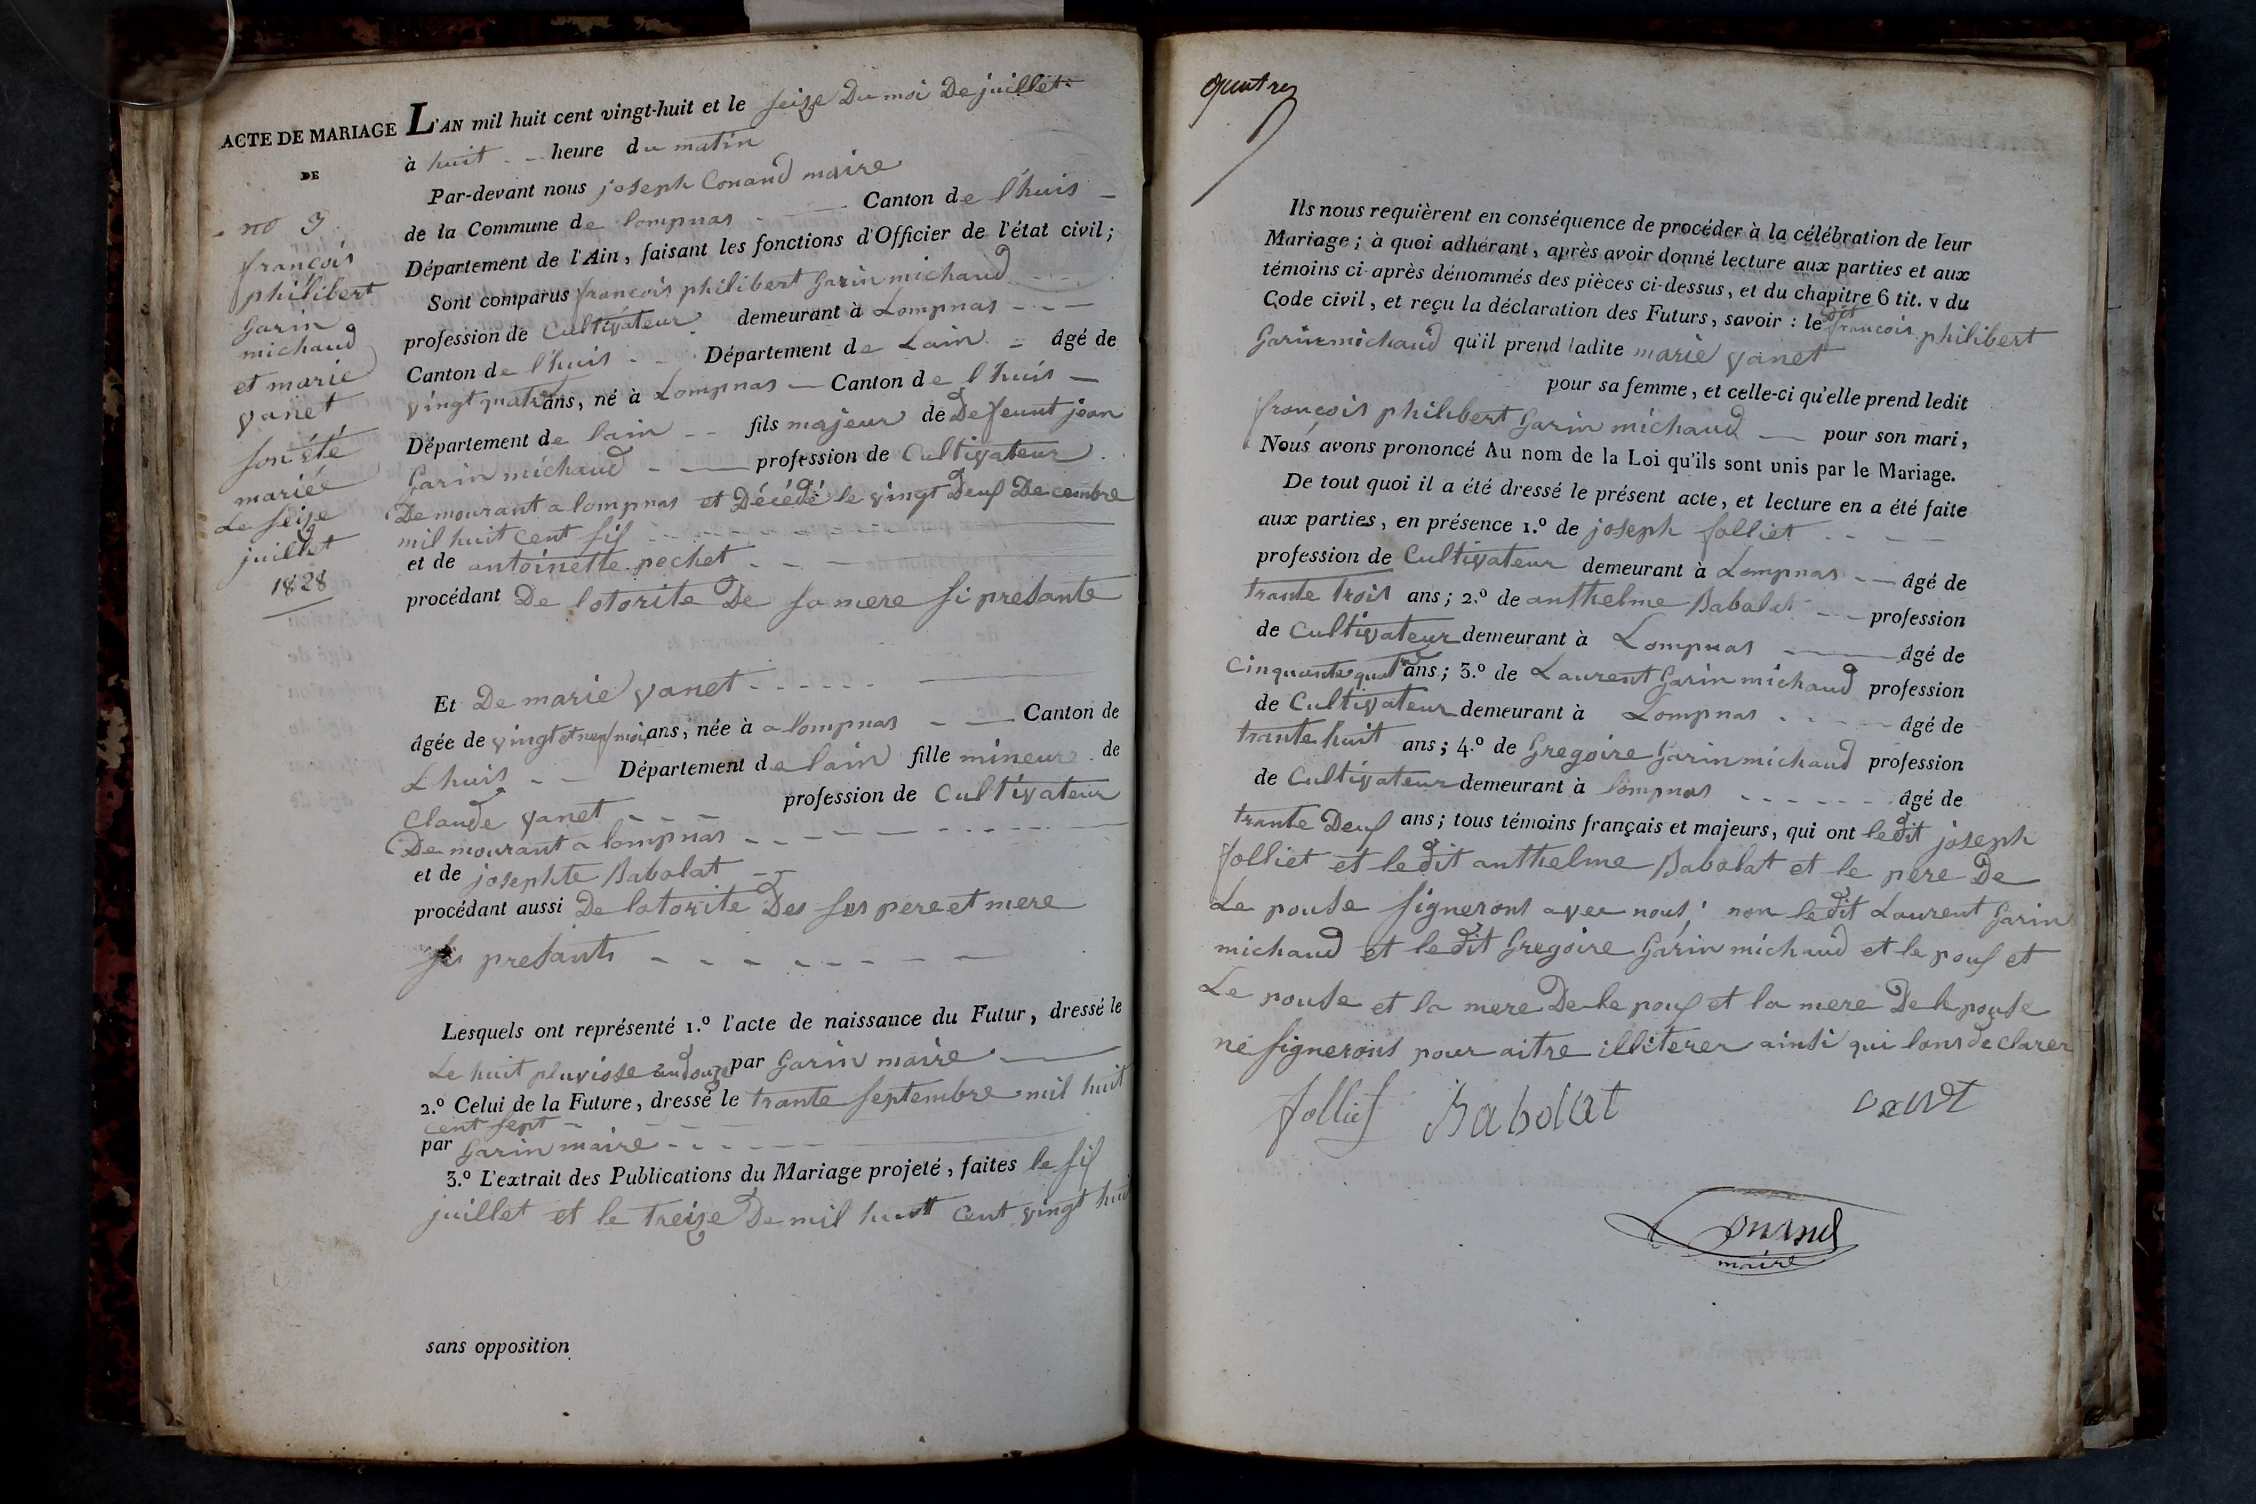 ACTE DE MARIAGE
DE
no 3
françois
philibert
Garin
michaud
et marie
vanet
son été
mariée
Le seize
juillet
1828
L'AN mil huit cent vingt-huit et le seize Du moi De juillet
à huit heure du matin
Par-devant nous joseph Conand maire
de la Commune de lompnas Canton de l'huis
Département de l'Ain, faisant les fonctions d'Officier de l'état civil;
Sont comparus françois philibert Garin michaud
profession de Cultivateur demeurant à Lompnas
Canton de l'huis Département de Lain âgé de
vingt quatre ans, né à Lompnas Canton de l'huis
Département de lain fils majeur de Defeunt jean
Garin michaud profession de Cultivateur
Demourant a lompnas et Décédé le vingt Deux Decembre
mil huit cent six
et de antoinette pochet
procédant De lotorite De sa mere si presante
Et De marie vanet
âgée de vingt et neuf moi ans, née à a lompnas Canton de
Lhuis Département de lain fille mineure de
Claude vanet profession de Cultivateur
Demourant a lompnas
et de josephte Babolat
procédant aussi De lotorite Des ses pere et mere
si presants
Lesquels ont représenté 1.º l'acte de naissance du Futur, dressé le
Le huit pluviose an douze par Garin maire
2.º Celui de la Future, dressé le trante septembre mil huit
cent sept
par Garin maire
3.º L'extrait des Publications du Mariage projeté, faites le six
juillet et le treize De mil huit cent vingt huit
sans opposition
quatre
Ils nous requièrent en conséquence de procéder à la célébration de leur
Mariage; à quoi adhérant, après avoir donné lecture aux parties et aux
témoins ci-après dénommés des pièces ci-dessus, et du chapitre 6 tit. v du
Code civil, et reçu la déclaration des Futurs, savoir: le dit françois philibert
Garin michaud qu'il prend ladite marie vanet
pour sa femme, et celle-ci qu'elle prend ledit
françois philibert Garin michaud pour son mari,
Nous avons prononcé Au nom de la Loi qu'ils sont unis par le Mariage.
De tout quoi il a été dressé le présent acte, et lecture en a été faite
aux parties, en présence 1.º de joseph folliet
profession de Cultivateur demeurant à Lompnas âgé de
trante trois ans; 2.º de anthelme Babolat profession
de Cultivateur demeurant à Lompnas âgé de
Cinquante quatre ans; 3.º de Laurent Garin michaud profession
de Cultivateur demeurant à Lompnas âgé de
trante huit ans; 4.º de Gregoire Garin michaud profession
de Cultivateur demeurant à lompnas âgé de
trante Deux ans; tous témoins français et majeurs, qui ont le dit joseph
folliet et le dit anthelme Babolat et le pere De
Le pouse signeront avec nous; non le dit Laurent Garin
michaud et le dit Gregoire Garin michaud et le poux et
Le pouse et la mere De le poux et la mere De le pouse
ne signeront pour aitre illiterer ainsi qui lons declarer
folliet Babolat vanet
Conand
maire